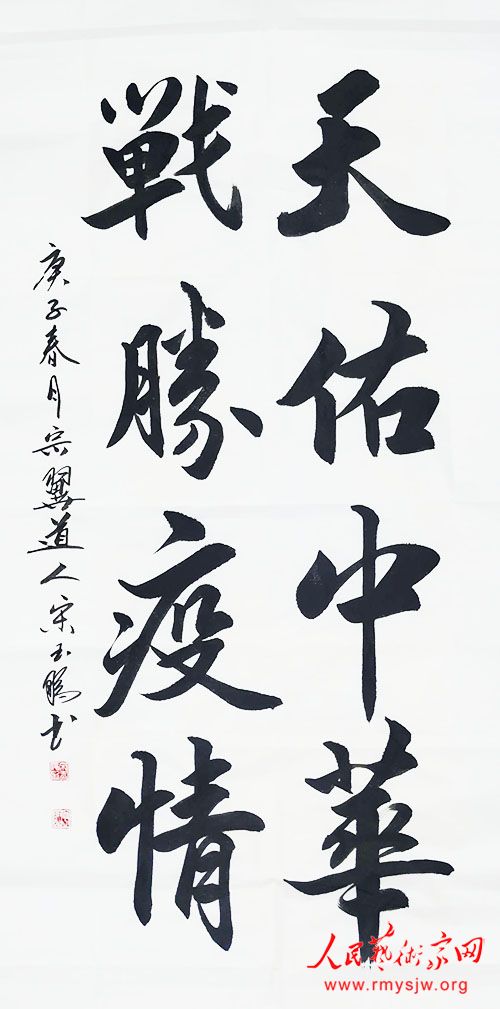 天佑中華
戰勝疫情
庚子春月宗翼道人宋玉鵬书
人民藝術家网
www.rmysjw.org